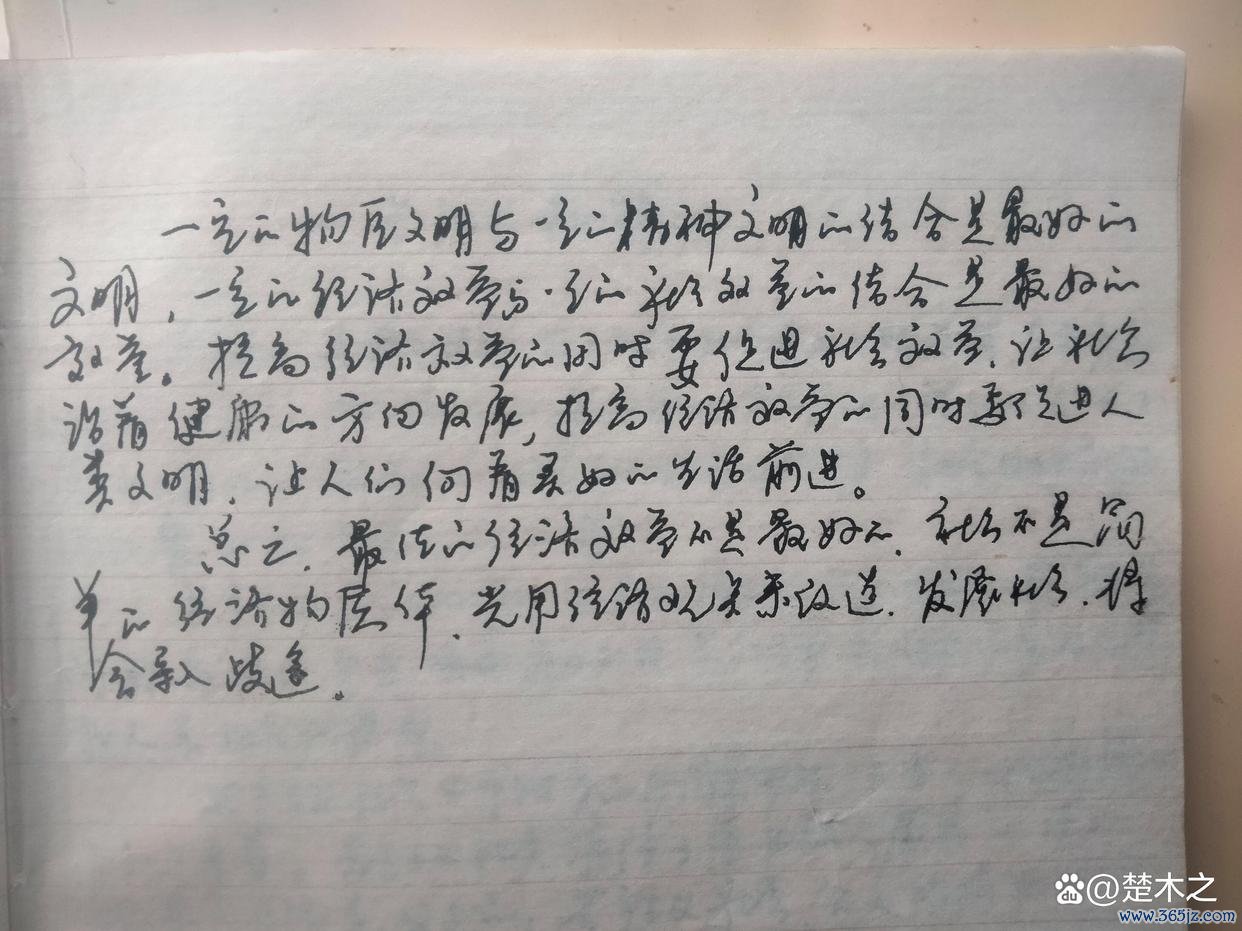 一定的物质文明与一定的精神文明的结合是最好的
文明，一定的经济效益与一定的社会效益的结合是最好的
效益。提高经济效益的同时要促进社会效益，让社会
沿着健康的方向发展，提高经济效益的同时要促进人
类文明，让人们向着美好的生活前进。
总之，最佳的经济效益不是最好的，社会不是简
单的经济物质体，光用经济观关系改造，发展社会，将
会导入歧途。
du@楚木之
www.365jz.com